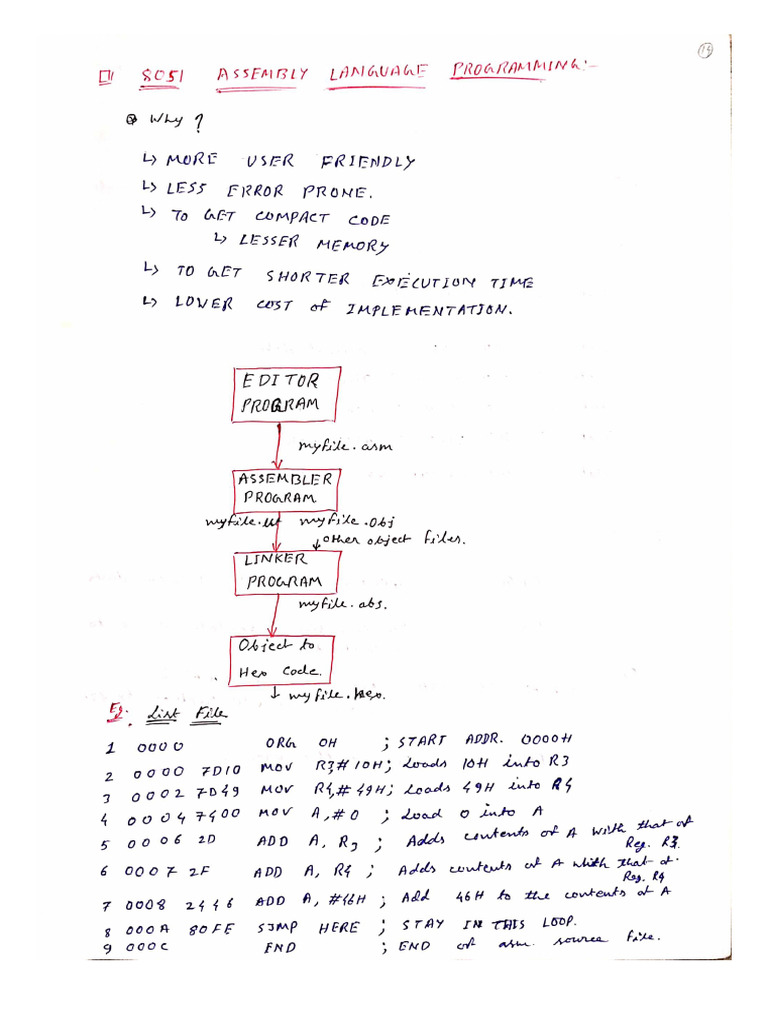 14
8051 ASSEMBLY LANGUAGE PROGRAMMING:-
Why?
↳ MORE USER FRIENDLY
↳ LESS ERROR PRONE.
↳ TO GET COMPACT CODE
↳ LESSER MEMORY
↳ TO GET SHORTER EXECUTION TIME
↳ LOWER COST of IMPLEMENTATION.
EDITOR
PROGRAM
myfile.asm
ASSEMBLER
PROGRAM
myfile.lst myfile.obj
other object files.
LINKER
PROGRAM
myfile.abs.
Object to
Hex Code.
myfile.hex.
Eg. List File
1 0000 ORG 0H ; START ADDR. 0000H
2 0000 7D10 MOV R3,#10H; Loads 10H into R3
3 0002 7D49 MOV R4,#49H; Loads 49H into R4
4 0004 7400 MOV A,#0 ; Load 0 into A
5 0006 2D ADD A, R3 ; Adds contents of A with that of
Reg. R3.
6 0007 2F ADD A, R4 ; Adds contents of A with that of.
Reg. R4
7 0008 2446 ADD A, #46H ; Add 46H to the contents of A
8 000A 80FE SJMP HERE ; STAY IN THIS LOOP.
9 000C END ; END of asm. source file.